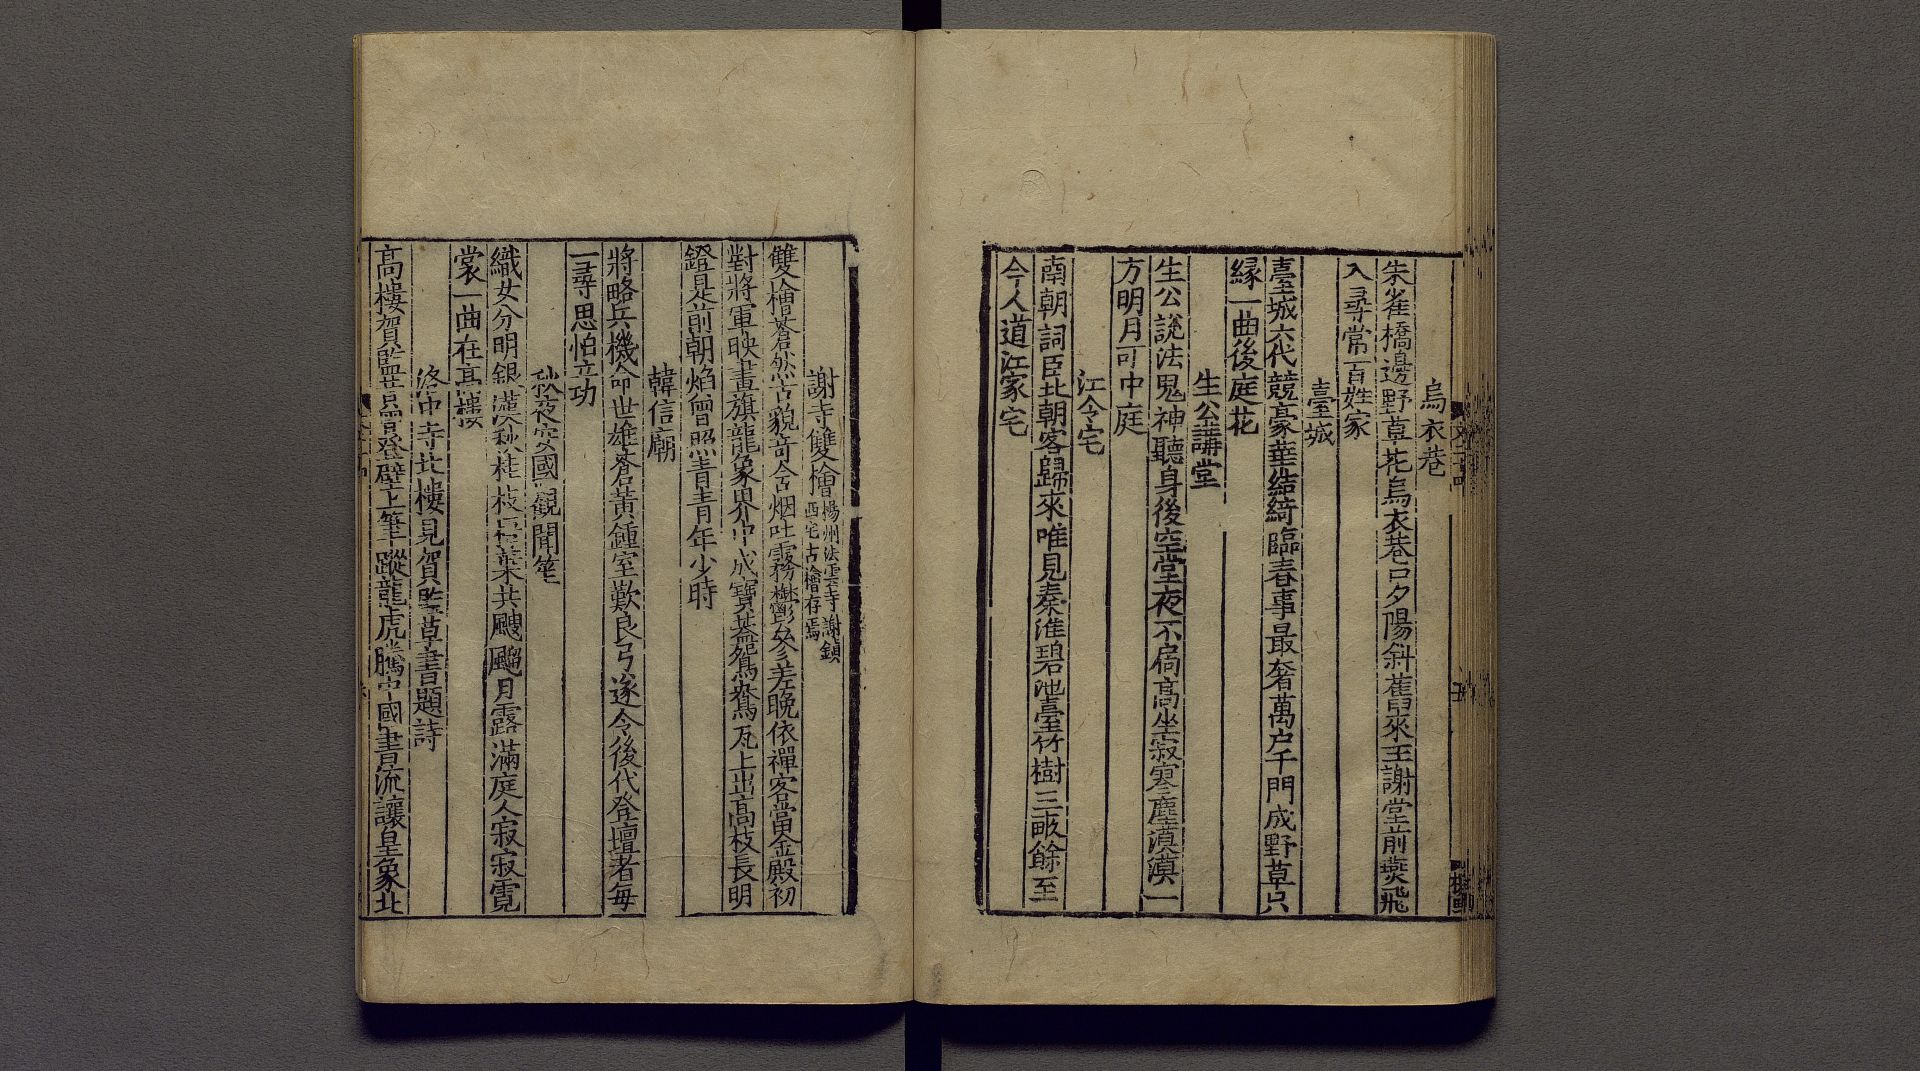 烏衣巷
朱雀橋邊野草花烏衣巷口夕陽斜舊來王謝堂前燕飛
入尋常百姓家
臺城
臺城六代競豪華結綺臨春事最奢萬户千門成野草只
緣一曲後庭花
生公講堂
生公說法鬼神聽身後空堂夜不扃高坐寂寒塵漠漠一
方明月可中庭
江令宅
南朝詞臣北朝客歸來唯見秦淮碧池臺竹樹三畝餘至
今人道江家宅
謝寺雙檜
楊州法雲寺謝鎮
西宅古檜存焉
雙檜蒼然古貌奇含烟吐霧鬱參差晚依禪客當金殿初
對將軍映畫旗龍象界中成寶蓋鴛鴦瓦上出高枝長明
鐙是前朝焰曾照青青年少時
韓信廟
將略兵機命世雄蒼黃鍾室歎良弓遂令後代登壇者每
一尋思怕立功
秋夜安國觀聞笙
織女分明銀漢秋桂枝梧葉共颼飀月露滿庭人寂寂霓
裳一曲在高樓
洛中寺北樓見賀監草書題詩
高樓賀監昔曾登壁上筆蹤龍虎騰中國書流讓皇象北